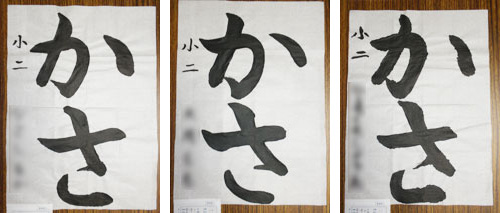 かさ
小二
かさ
小二
かさ
小二